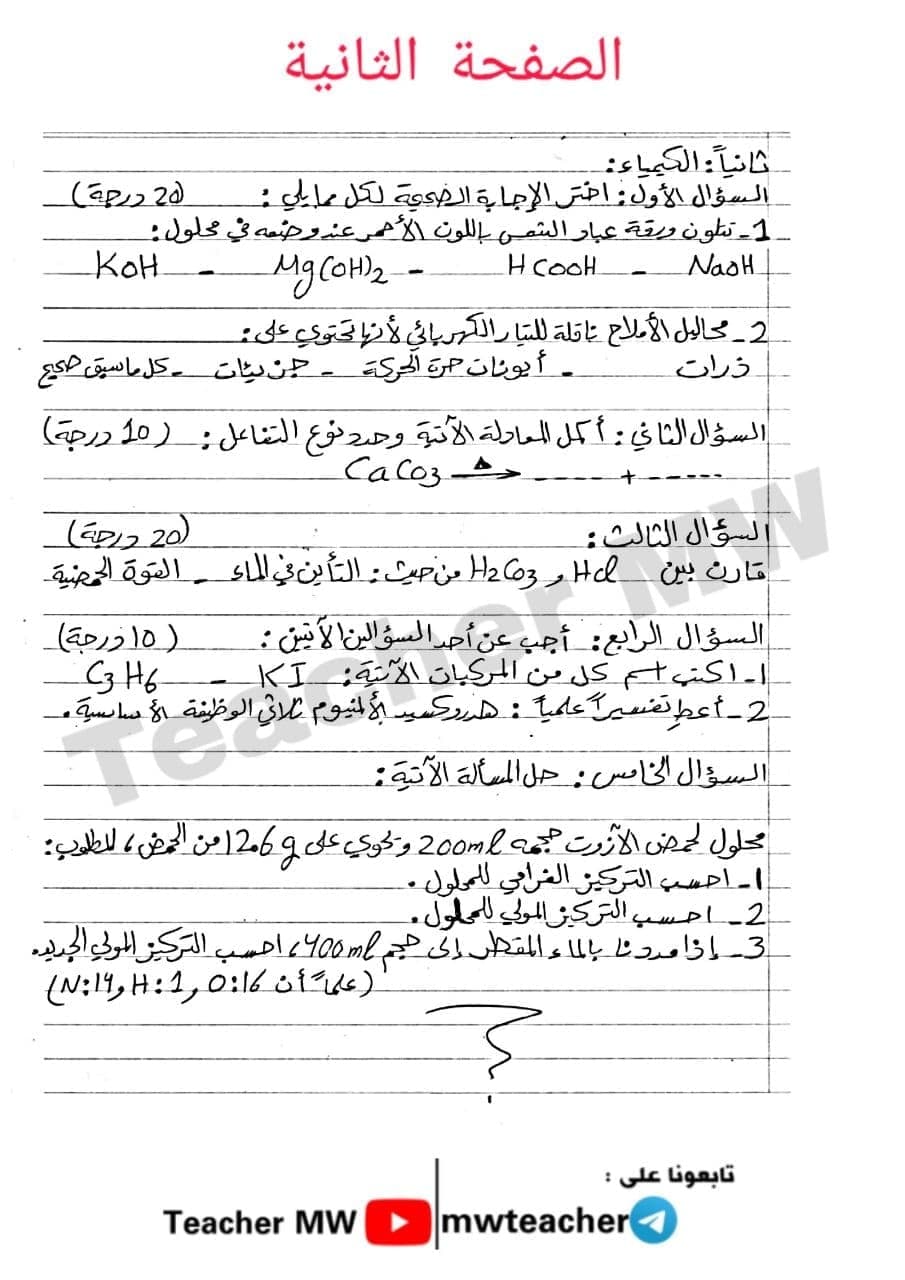 الصفحة الثانية
ثانياً: الكيمياء:
السؤال الأول: اختر الإجابة الصحيحة لكل مما يلي: (20 درجة)
1- تتلون ورقة عباد الشمس باللون الأحمر عند وضعه في محلول:
NaOH - HCOOH - Mg(OH)2 - KOH
2- محاليل الأملاح ناقلة للتيار الكهربائي لأنها تحتوي على:
ذرات - أيونات حرة الحركة - جزيئات - كل ماسبق صحيح
السؤال الثاني: أكمل المعادلة الآتية وحدد نوع التفاعل: (10 درجة)
CaCO3 —Δ→ ----- + -----
السؤال الثالث: (20 درجة)
قارن بين HCl و H2CO3 من حيث: التأين في الماء - القوة الحمضية
السؤال الرابع: أجب عن أحد السؤالين الآتيين: (10 درجة)
1- اكتب اسم كل من المركبات الآتية: KI - C3H6
2- أعطِ تفسيراً علمياً: هدروكسيد الألمنيوم ثلاثي الوظيفة الأساسية.
السؤال الخامس: حل المسألة الآتية:
محلول لحمض الآزوت حجمه 200ml ويحوي على 12.6g من الحمض، المطلوب:
1- احسب التركيز الغرامي للمحلول.
2- احسب التركيز المولي للمحلول.
3- إذا مددنا بالماء المقطر إلى حجم 400ml، احسب التركيز المولي الجديد.
(علماً أن N:14, H:1, O:16)
Teacher MW
تابعونا على :
Teacher MW
mwteacher